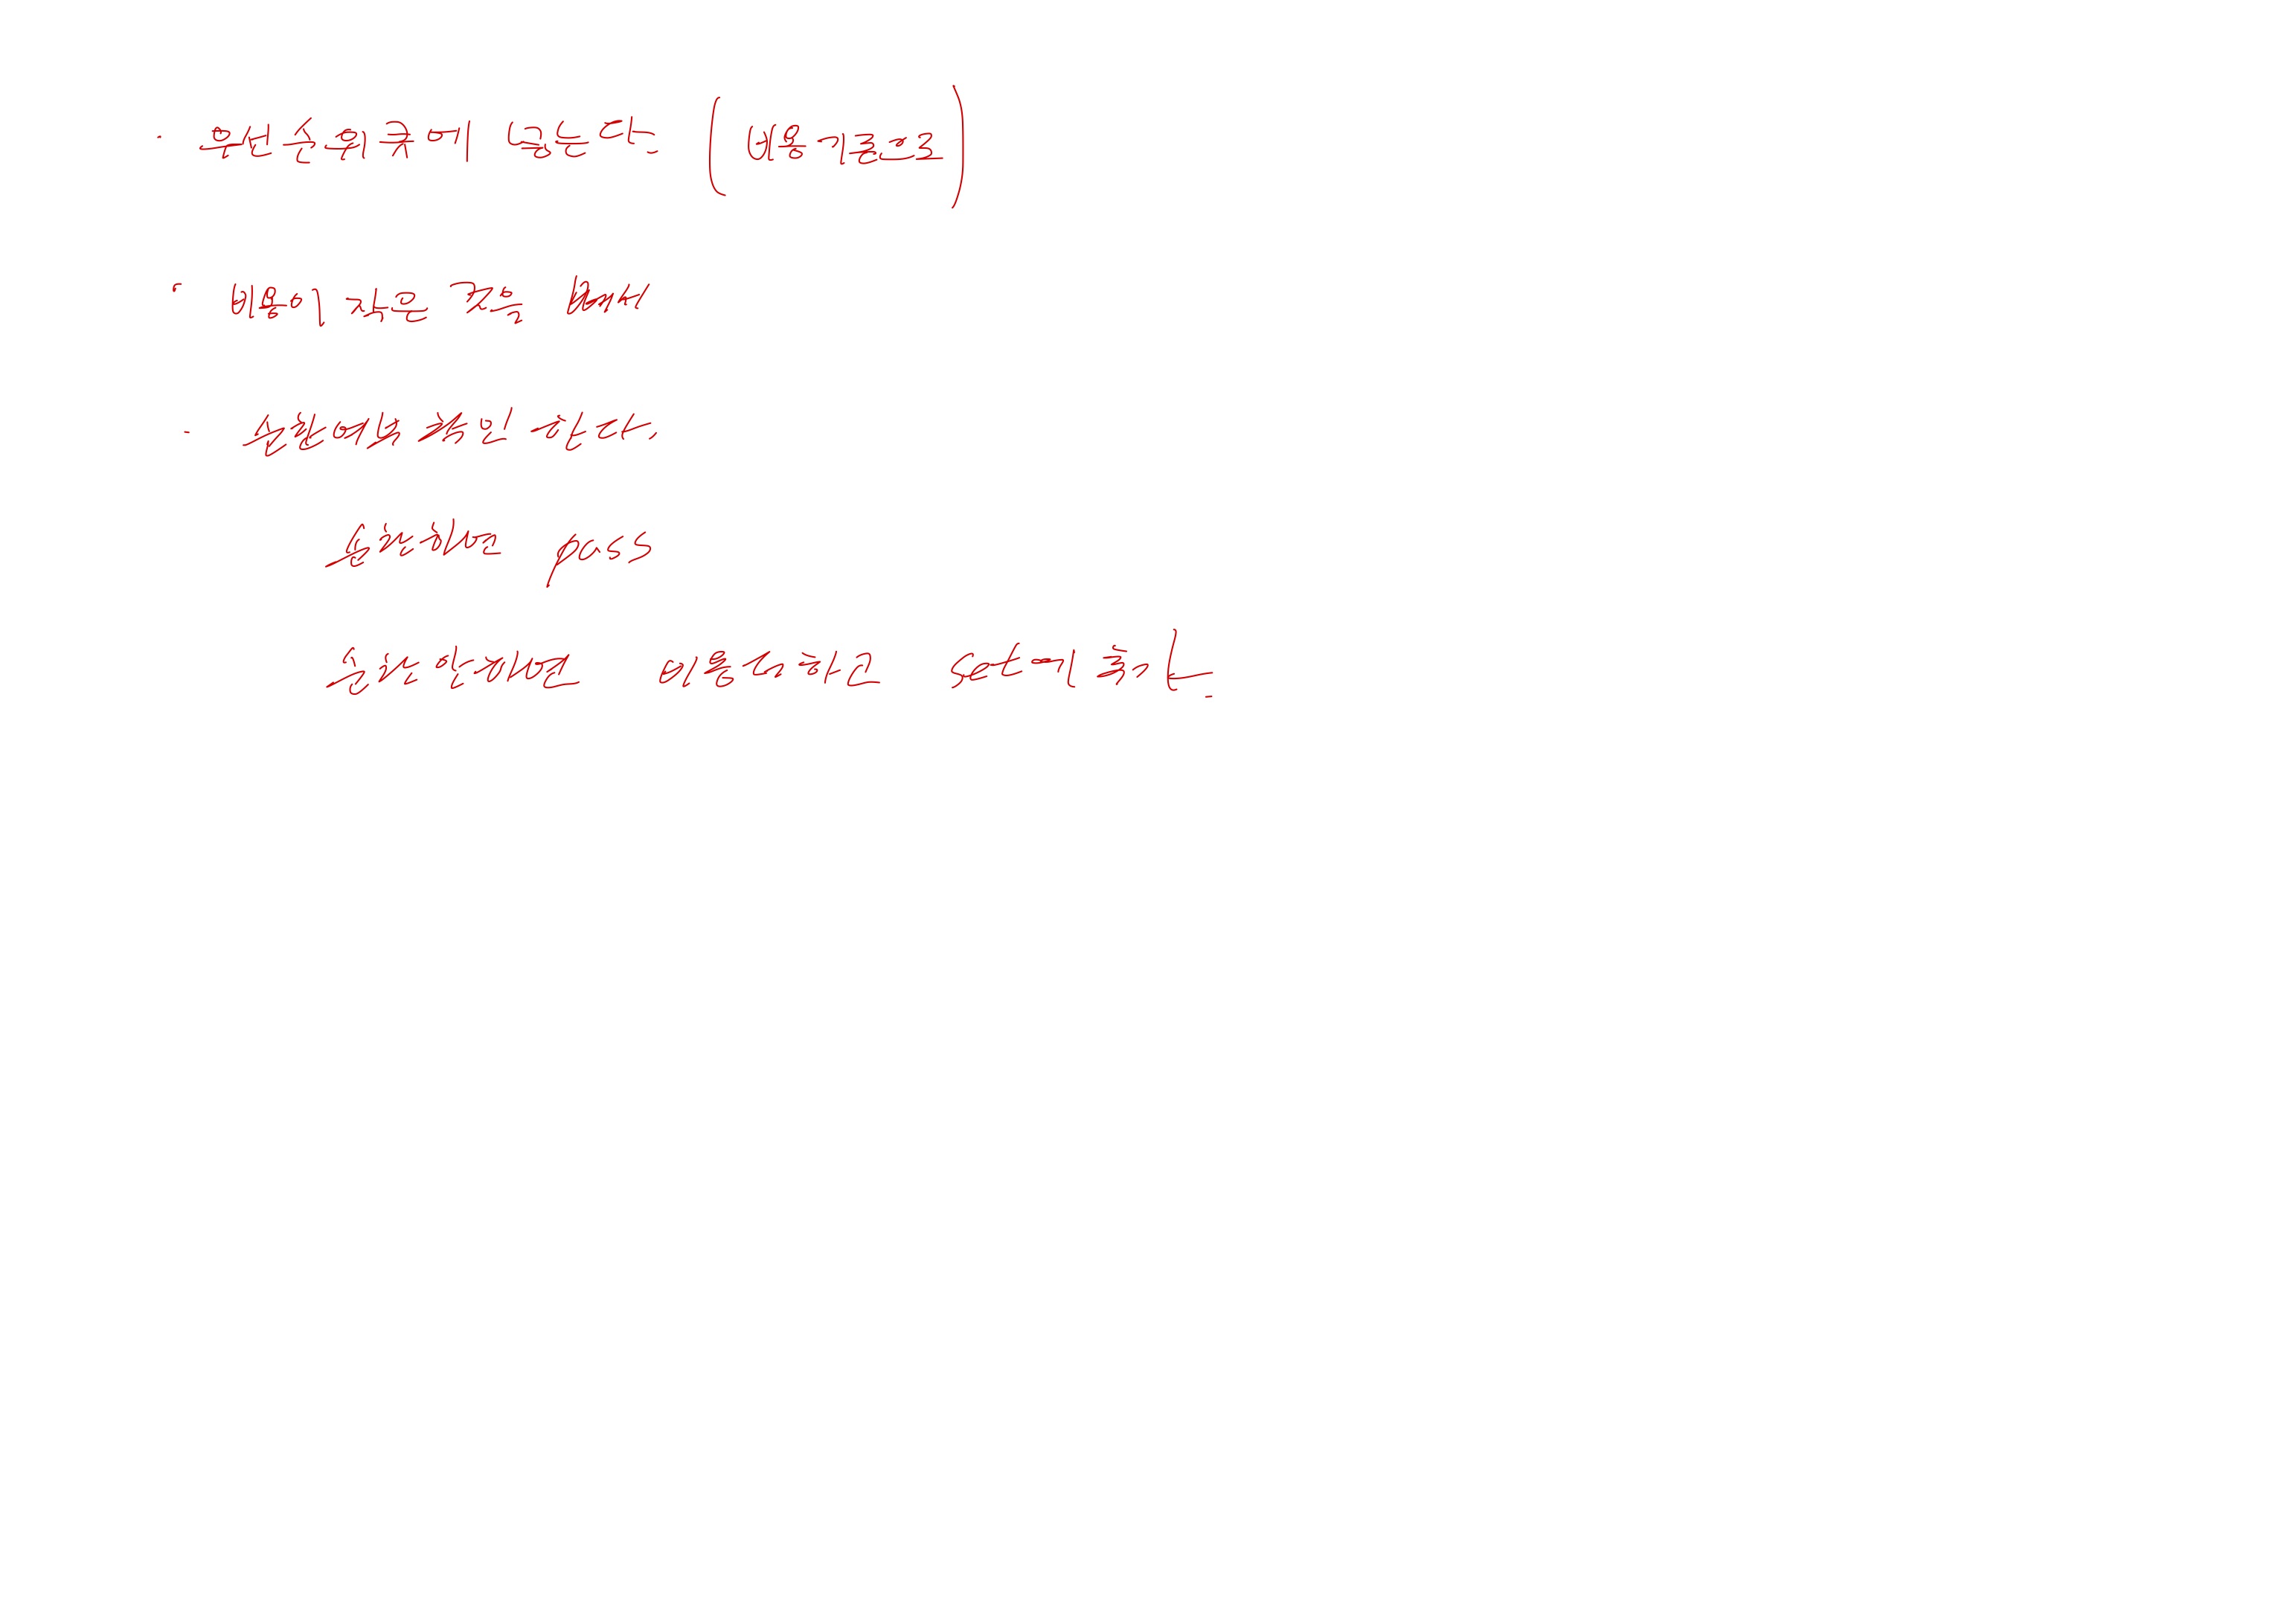 · 우선순위큐에 넣는다. (비용기준으로)
· 비용이 작은 것을 빼서
· 순환여부 확인 한다.
순환하면 pass
순환 안하면 비용더하고 set에 추가.